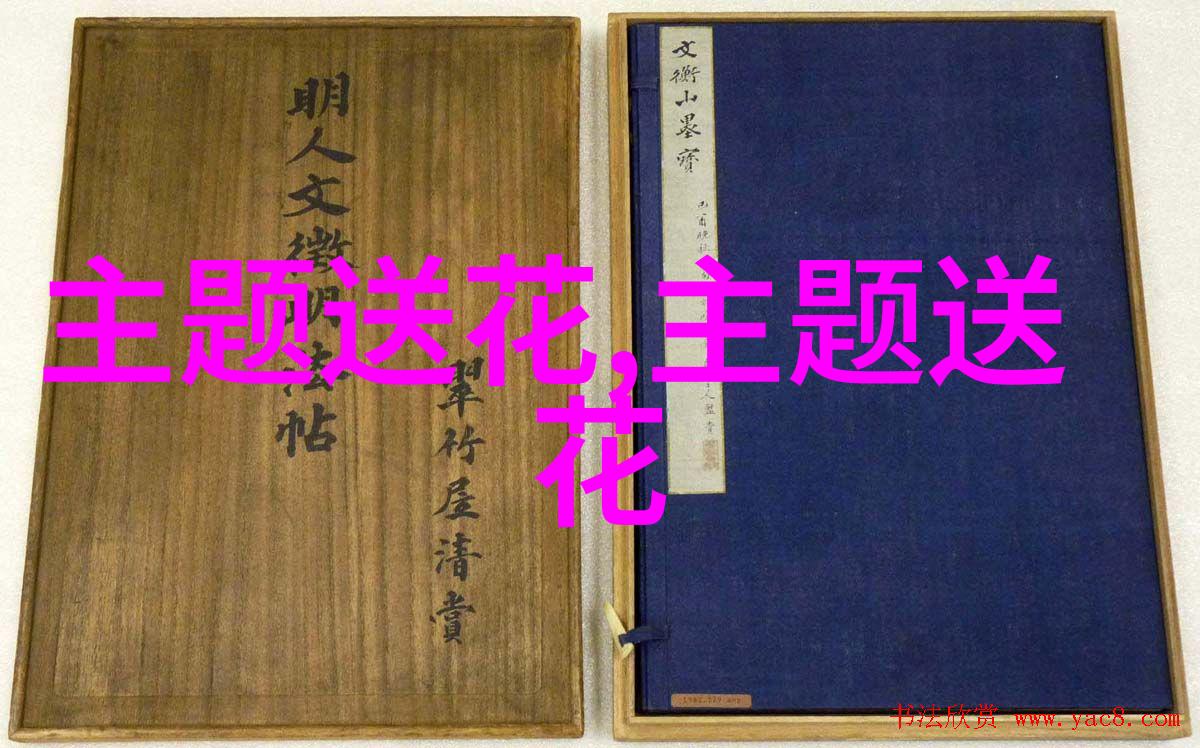 明人文徵明法帖
翠竹屋清赏
文衡山墨寶
主题送花,主题送
花
书法欣赏 www.yac8.com